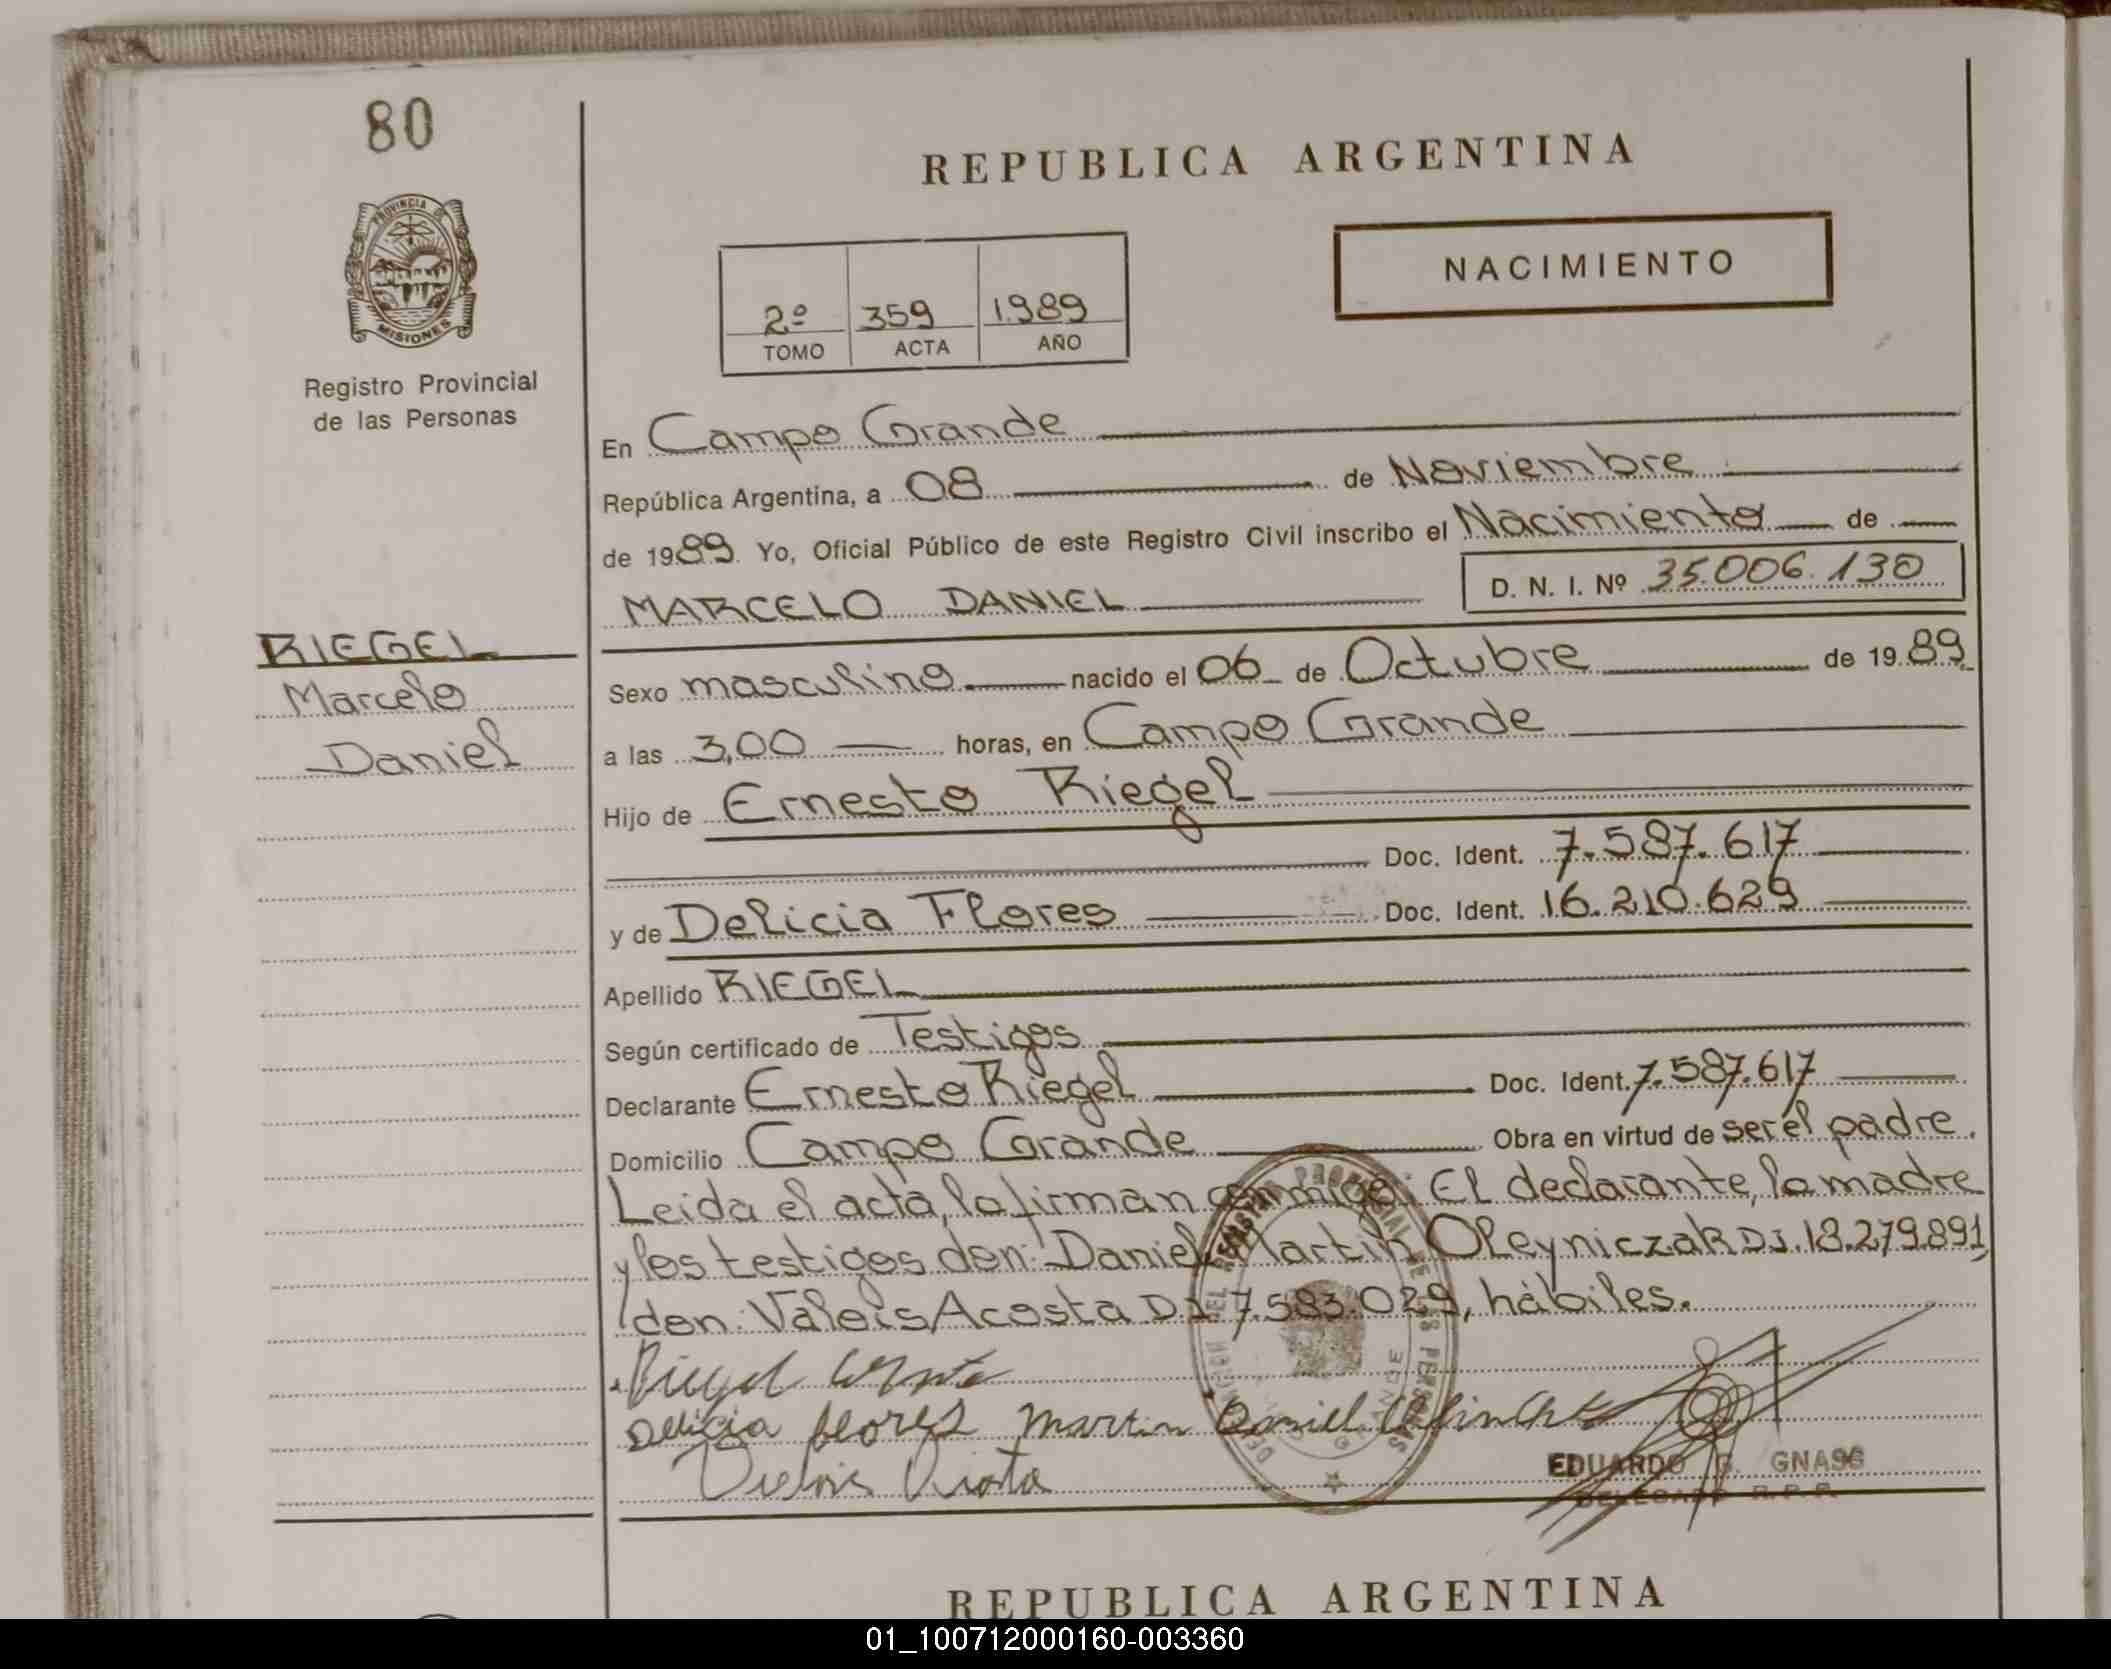 80
PROVINCIA DE
MISIONES
Registro Provincial
de las Personas
REPUBLICA ARGENTINA
NACIMIENTO
2º 359 1989
TOMO ACTA AÑO
En Campo Grande
República Argentina, a 08 de Noviembre
de 1989 Yo, Oficial Público de este Registro Civil inscribo el Nacimiento de
MARCELO DANIEL D. N. I. Nº 35.006.130
RIEGEL
Marcelo
Daniel
Sexo masculino nacido el 06 de Octubre de 1989
a las 3,00 horas, en Campo Grande
Hijo de Ernesto Riegel
Doc. Ident. 7.587.617
y de Delicia Flores Doc. Ident. 16.210.629
Apellido RIEGEL
Según certificado de Testigos
Declarante Ernesto Riegel Doc. Ident. 7.587.617
Domicilio Campo Grande Obra en virtud de ser el padre.
Leida el acta, la firman conmigo: El declarante, la madre
y los testigos don: Daniel Martin Oleyniczak D.I. 18.279.891,
don: Valois Acosta D.I 7.583.029, hábiles.
Riegel Ernesto
Delicia flores Martin Daniel
EDUARDO GNASS
DELEGADO R.P.P.
REPUBLICA ARGENTINA
01_100712000160-003360